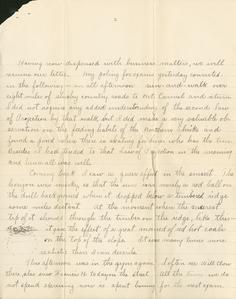 2
Having now dispensed with business matters, we will
resume our letter. My poling for exams yesterday consisted
in the following - an all afternoon run-and-walk over
eight miles of slushy country roads to Mt. Carmel and return
I did not acquire any added understanding of the second law
of Projection by that walk but I did make a very valuable ob-
servation on the feeding habits of the Northern Shrike and
found a pond where there is skating for those who has the time.
Besides I had decided to that law of in the morning
and lunch all was well.
Coming back I saw a queer effect in the sunset. The
horizon was smoky, so that the sun was merely a red ball on
the dull background when it dropped below a timbered ridge
some miles distant. At the moment where the sunset
top of it shone through the timber on the ridge, like this-
it gave the effect of a great mound of red hot coals
on the top of the slope. It was many times more
realistic than
This afternoon was in the gym again. I often see Will Chou
there, also our Farmer
not spend skiing now is spent boning for the next exam.